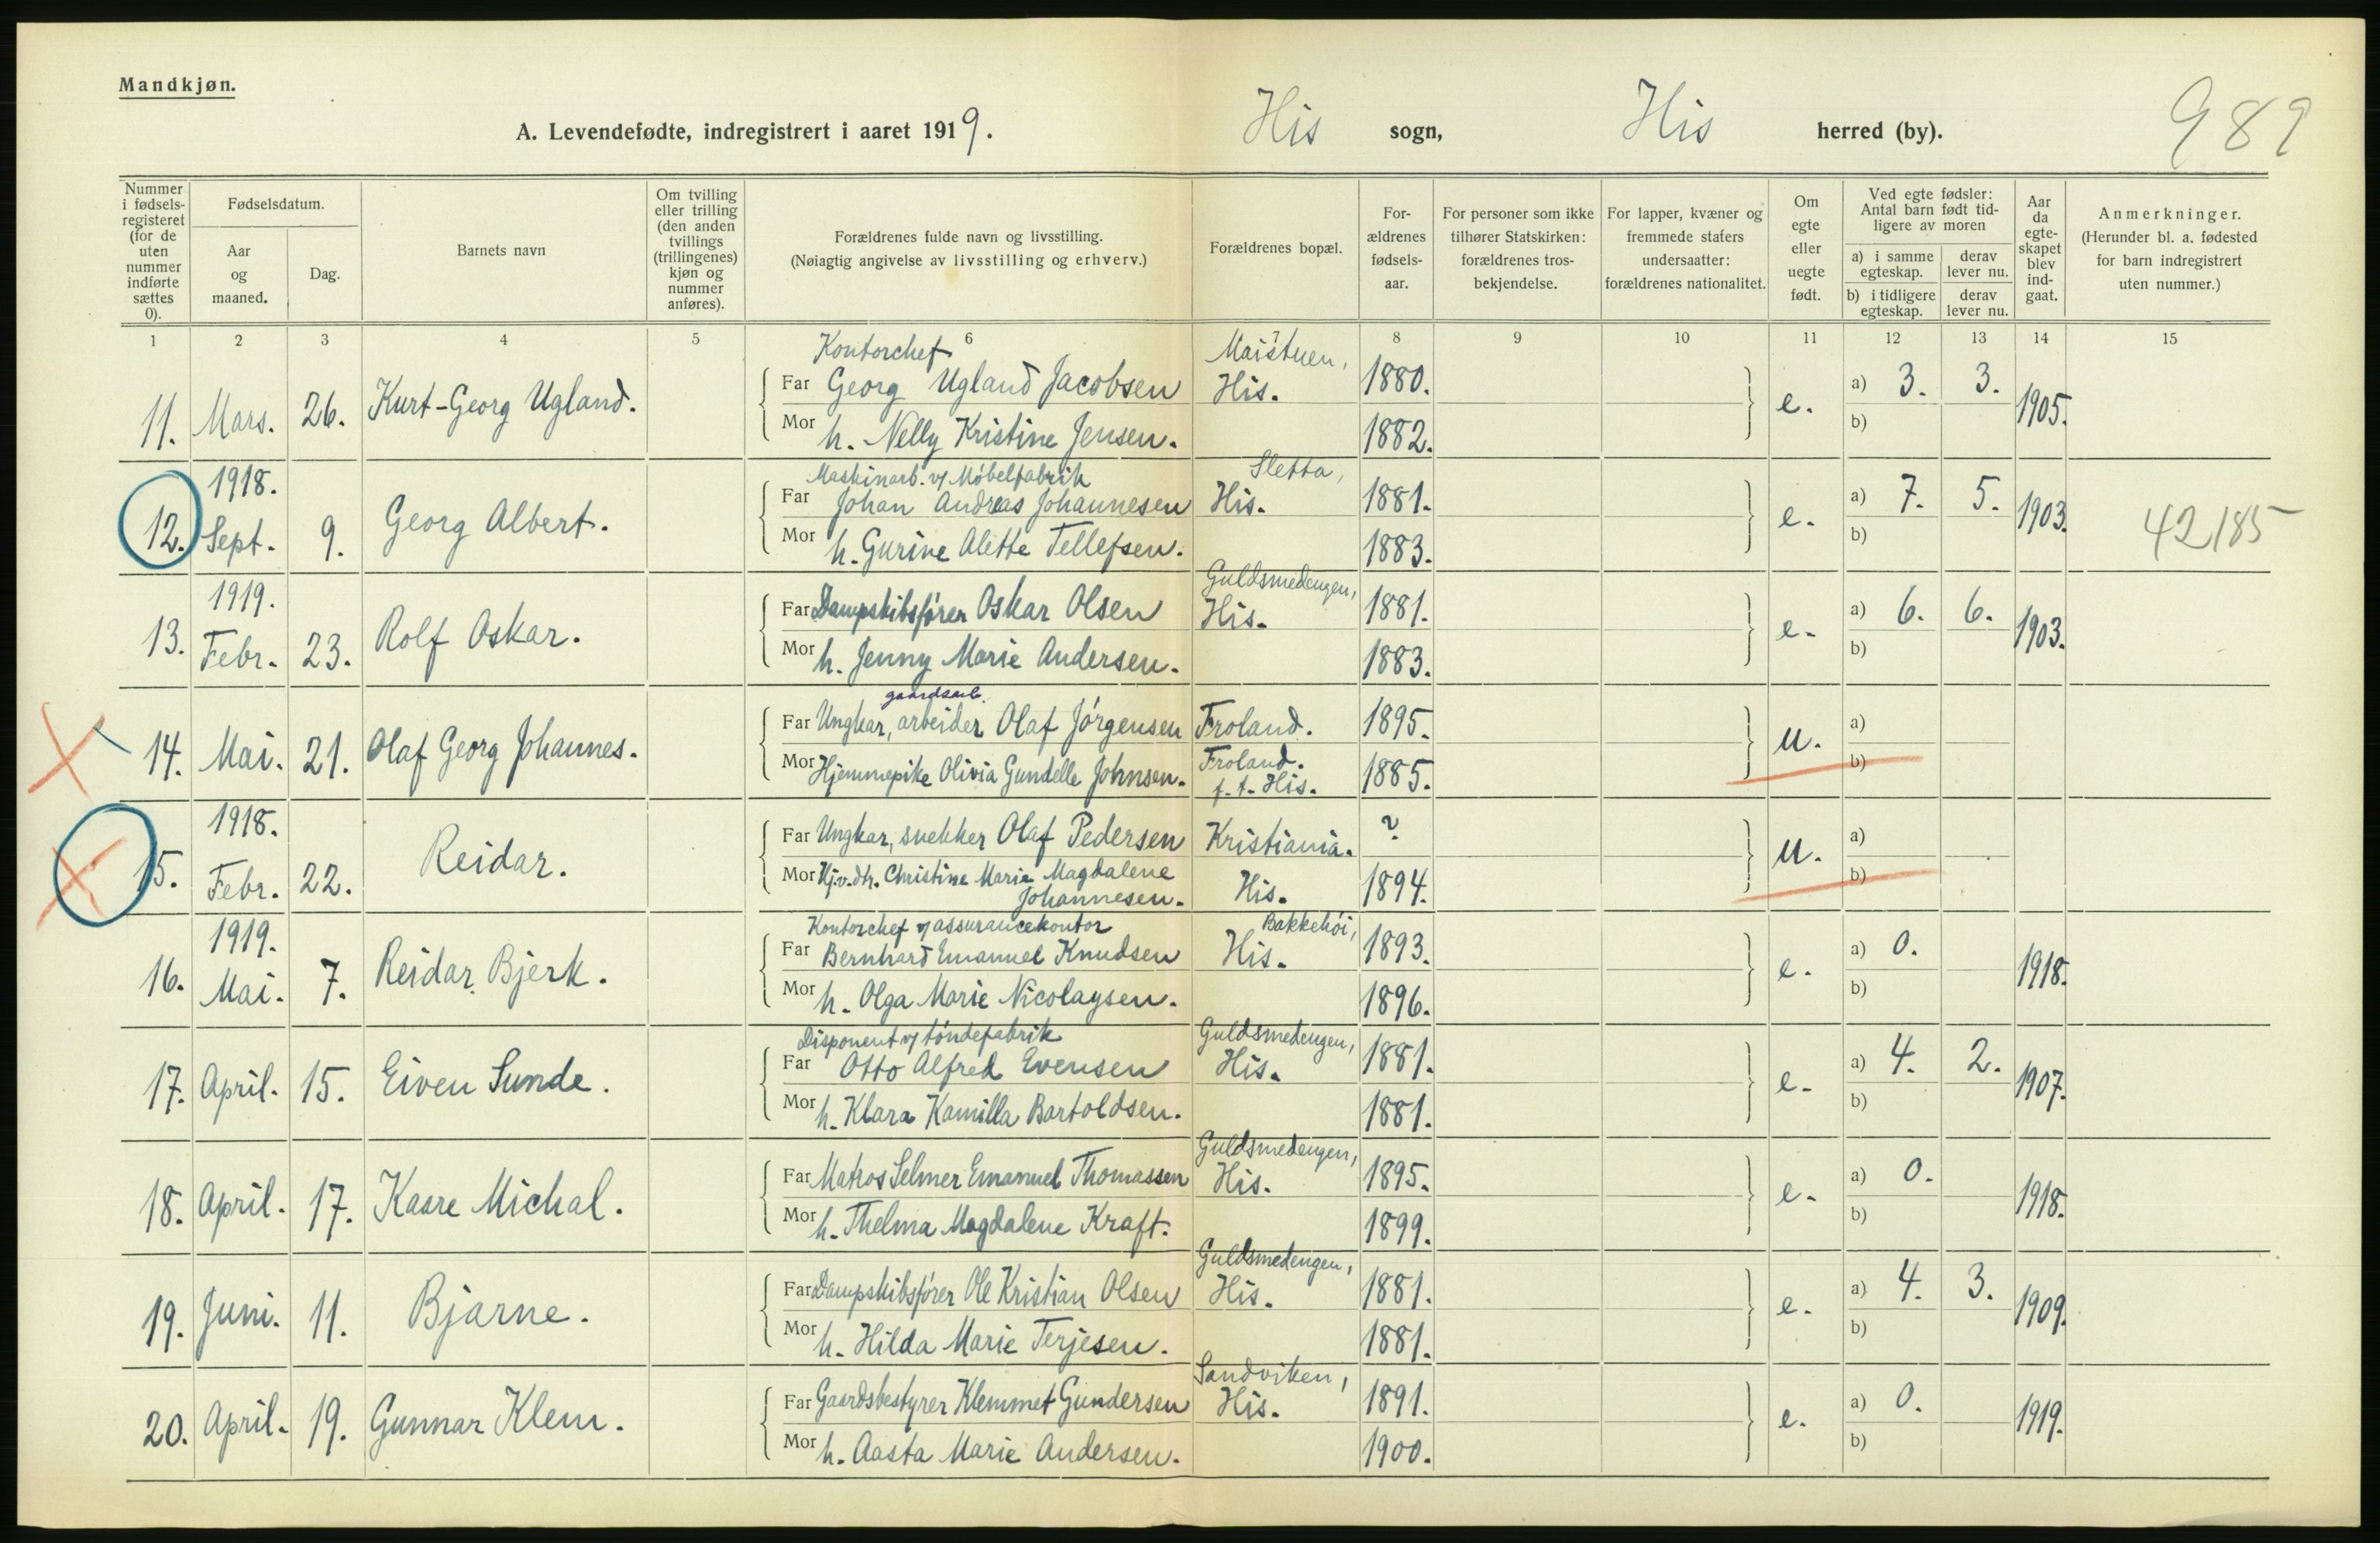 Mandkjøn.
A. Levendefødte, indregistrert i aaret 1919. His sogn, His herred (by). 989
Nummer i fødsels-registeret (for de uten nummer indførte sættes 0).
Fødselsdatum.
Aar og maaned.
Dag.
Barnets navn
Om tvilling eller trilling (den anden tvillings (trillingenes) kjøn og nummer anføres).
Forældrenes fulde navn og livsstilling.
(Nøiagtig angivelse av livsstilling og erhverv.)
Forældrenes bopæl.
For-ældrenes fødsels-aar.
For personer som ikke tilhører Statskirken: forældrenes tros-bekjendelse.
For lapper, kvæner og fremmede stafers undersaatter: forældrenes nationalitet.
Om egte eller uegte født.
Ved egte fødsler: Antal barn født tid-ligere av moren
a) i samme egteskap.
derav lever nu.
b) i tidligere egteskap.
derav lever nu.
Aar da egte-skapet blev ind-gaat.
Anmerkninger.
(Herunder bl. a. fødested for barn indregistrert uten nummer.)
1 2 3 4 5 6 7 8 9 10 11 12 13 14 15
Kontorchef Maistuen,
11. Mars. 26. Kurt-Georg Ugland. Far Georg Ugland Jacobsen His. 1880. e. a) 3. 3. 1905.
Mor h. Nelly Kristine Jensen. 1882. b)
1918. Maskinarb. v/ Møbelfabrik Sletta,
12. Sept. 9. Georg Albert. Far Johan Andreas Johannesen His. 1881. e. a) 7. 5. 1903. 42185
Mor h. Gurine Alette Tellefsen. 1883. b)
1919. Guldsmedengen,
13. Febr. 23. Rolf Oskar. Far Dampskibsfører Oskar Olsen His. 1881. e. a) 6. 6. 1903.
Mor h. Jenny Marie Andersen. 1883. b)
gaardsarb.
14. Mai. 21. Olaf Georg Johannes. Far Ungkar, arbeider Olaf Jørgensen Froland. 1895. u. a)
Mor Hjemmepike Olivia Gundelle Johnsen. Froland. f. t. His. 1885. b)
1918.
15. Febr. 22. Reidar. Far Ungkar, snekker Olaf Pedersen Kristiania. ? u. a)
Mor Hj.v.dtr. Christine Marie Magdalene
Johannesen. His. 1894. b)
1919. Kontorchef v/ assurancekontor Bakkehøi,
16. Mai. 7. Reidar Bjerk. Far Bernhard Emanuel Knudsen His. 1893. e. a) 0. 1918.
Mor h. Olga Marie Nicolaysen. 1896. b)
Disponent v/ tøndefabrik Guldsmedengen,
17. April. 15. Eiven Sunde. Far Otto Alfred Evensen His. 1881. e. a) 4. 2. 1907.
Mor h. Klara Kamilla Bartoldsen. 1881. b)
Guldsmedengen,
18. April. 17. Kaare Michal. Far Matros Selmer Emanuel Thomassen His. 1895. e. a) 0. 1918.
Mor h. Thelma Magdalene Kraft. 1899. b)
Guldsmedengen,
19. Juni. 11. Bjarne. Far Dampskibsfører Ole Kristian Olsen His. 1881. e. a) 4. 3. 1909.
Mor h. Hilda Marie Terjesen. 1881. b)
Sandviken,
20. April. 19. Gunnar Klem. Far Gaardsbestyrer Klemmet Gundersen His. 1891. e. a) 0. 1919.
Mor h. Aasta Marie Andersen. 1900. b)